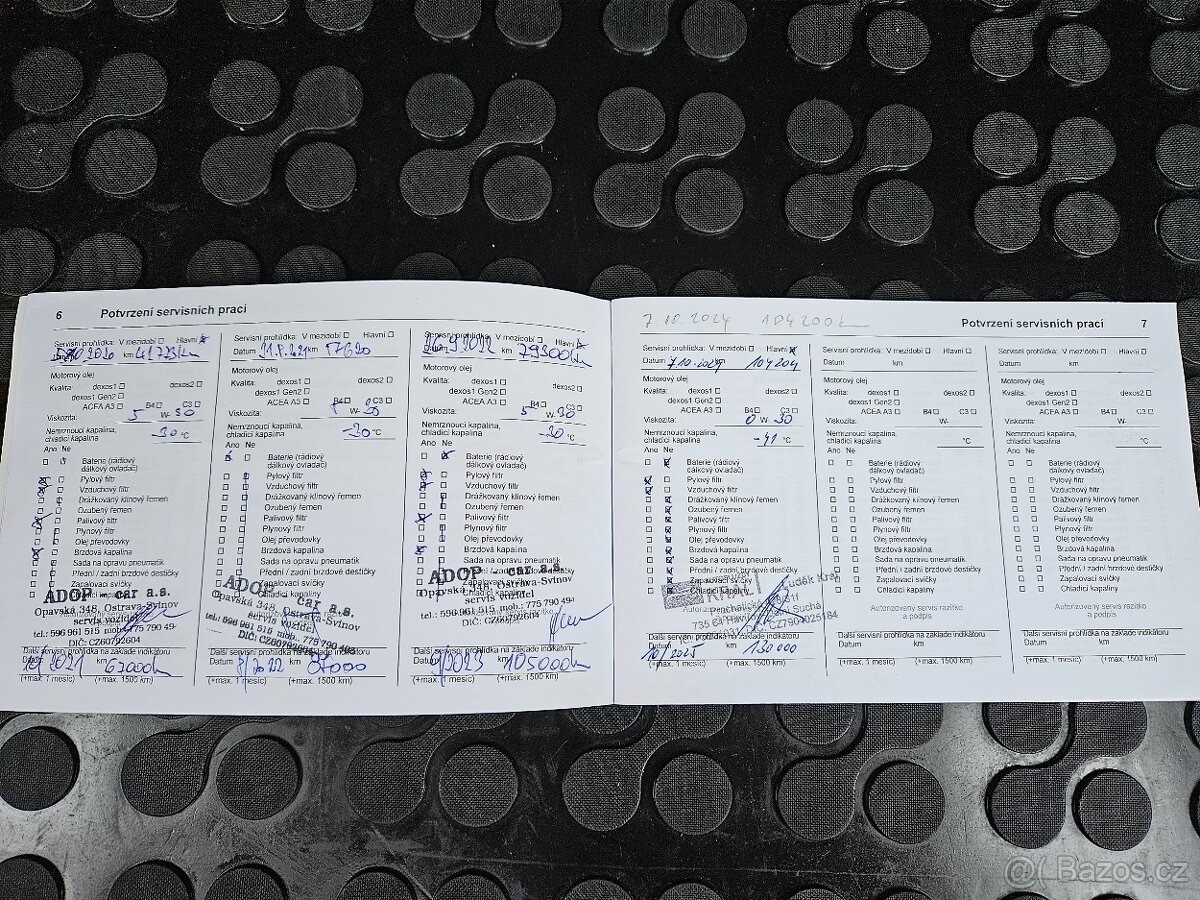 6 Potvrzení servisních prací
Servisní prohlídka: V mezidobí Hlavní
5.10.2020 km 41723km
Motorový olej
Kvalita: dexos1 dexos2
dexos1 Gen2
ACEA A3 B4 C3
Viskozita: 5 W- 30
Nemrznoucí kapalina,
chladicí kapalina -30 °C
Ano Ne
Baterie (rádiový
dálkový ovladač)
Pylový filtr
Vzduchový filtr
Drážkovaný klínový řemen
Ozubený řemen
Palivový filtr
Plynový filtr
Olej převodovky
Brzdová kapalina
Sada na opravu pneumatik
Přední / zadní brzdové destičky
Zapalovací svíčky
Chladicí kapaliny
ADOP - car a.s.
Opavská 348, Ostrava-Svinov
servis vozidel
tel.: 596 961 515 mob.: 775 790 49-
DIČ: CZ60792604
Další servisní prohlídka na základě indikátoru
2021 km 67000km
(+max. 1 měsíc) (+max. 1500 km)
Servisní prohlídka: V mezidobí Hlavní
Datum km
Motorový olej
Kvalita: dexos1 dexos2
dexos1 Gen2
ACEA A3 B4 C3
Viskozita: W- 30
Nemrznoucí kapalina,
chladicí kapalina -30 °C
Ano Ne
Baterie (rádiový
dálkový ovladač)
Pylový filtr
Vzduchový filtr
Drážkovaný klínový řemen
Ozubený řemen
Palivový filtr
Plynový filtr
Olej převodovky
Brzdová kapalina
Sada na opravu pneumatik
Přední / zadní brzdové destičky
Zapalovací svíčky
Chladicí kapaliny
ADOP - car a.s.
Opavská 348, Ostrava-Svinov
servis vozidel
tel.: 596 961 515 mob.: 775 790 495
DIČ: CZ60792604
Další servisní prohlídka na základě indikátoru
Datum km
(+max. 1 měsíc) (+max. 1500 km)
Servisní prohlídka: V mezidobí Hlavní
9 2022 km 79300km
Motorový olej
Kvalita: dexos1 dexos2
dexos1 Gen2
ACEA A3 B4 C3
Viskozita: 5 W- 30
Nemrznoucí kapalina,
chladicí kapalina -30 °C
Ano Ne
Baterie (rádiový
dálkový ovladač)
Pylový filtr
Vzduchový filtr
Drážkovaný klínový řemen
Ozubený řemen
Palivový filtr
Plynový filtr
Olej převodovky
Brzdová kapalina
Sada na opravu pneumatik
Přední / zadní brzdové destičky
Zapalovací svíčky
Chladicí kapaliny
ADOP - car a.s.
Opavská 348, Ostrava-Svinov
servis vozidel
tel.: 596 961 515 mob.: 775 790 49
DIČ: CZ60792604
Další servisní prohlídka na základě indikátoru
9/2023 105000km
(+max. 1 měsíc) (+max. 1500 km)
7 10. 2024 104200km
Potvrzení servisních prací 7
Servisní prohlídka: V mezidobí Hlavní
Datum 7.10.2024 104204
Motorový olej
Kvalita: dexos1 dexos2
dexos1 Gen2
ACEA A3 B4 C3
Viskozita: 0 W- 30
Nemrznoucí kapalina,
chladicí kapalina -41 °C
Ano Ne
Baterie (rádiový
dálkový ovladač)
Pylový filtr
Vzduchový filtr
Drážkovaný klínový řemen
Ozubený řemen
Palivový filtr
Plynový filtr
Olej převodovky
Brzdová kapalina
Sada na opravu pneumatik
Přední / zadní brzdové destičky
Zapalovací svíčky
Chladicí kapaliny
Další servisní prohlídka na základě indikátoru
Datum 10/2025 km 130000
(+max. 1 měsíc) (+max. 1500 km)
Servisní prohlídka: V mezidobí Hlavní
Datum km
Motorový olej
Kvalita: dexos1 dexos2
dexos1 Gen2
ACEA A3 B4 C3
Viskozita: W-
Nemrznoucí kapalina,
chladicí kapalina °C
Ano Ne
Baterie (rádiový
dálkový ovladač)
Pylový filtr
Vzduchový filtr
Drážkovaný klínový řemen
Ozubený řemen
Palivový filtr
Plynový filtr
Olej převodovky
Brzdová kapalina
Sada na opravu pneumatik
Přední / zadní brzdové destičky
Zapalovací svíčky
Chladicí kapaliny
Autorizovaný servis razítko
a podpis
Další servisní prohlídka na základě indikátoru
Datum km
(+max. 1 měsíc) (+max. 1500 km)
Servisní prohlídka: V mezidobí Hlavní
Datum km
Motorový olej
Kvalita: dexos1 dexos2
dexos1 Gen2
ACEA A3 B4 C3
Viskozita: W-
Nemrznoucí kapalina,
chladicí kapalina °C
Ano Ne
Baterie (rádiový
dálkový ovladač)
Pylový filtr
Vzduchový filtr
Drážkovaný klínový řemen
Ozubený řemen
Palivový filtr
Plynový filtr
Olej převodovky
Brzdová kapalina
Sada na opravu pneumatik
Přední / zadní brzdové destičky
Zapalovací svíčky
Chladicí kapaliny
Autorizovaný servis razítko
a podpis
Další servisní prohlídka na základě indikátoru
Datum km
(+max. 1 měsíc) (+max. 1500 km)
Bazos.cz